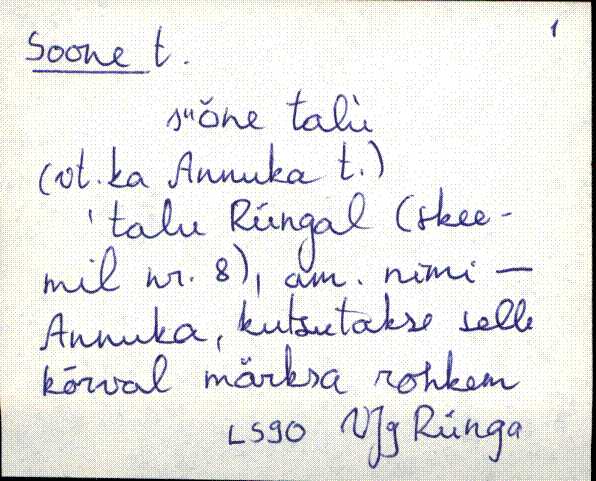 1
Soone t.
sᵘŏne talù
(vt. ka Annuka t.)
'talu Rüngal (skee-
mil nr. 8), am. nimi —
Annuka, kutsutakse selle
kõrval märksa rohkem
LS90 Vjg Rünga